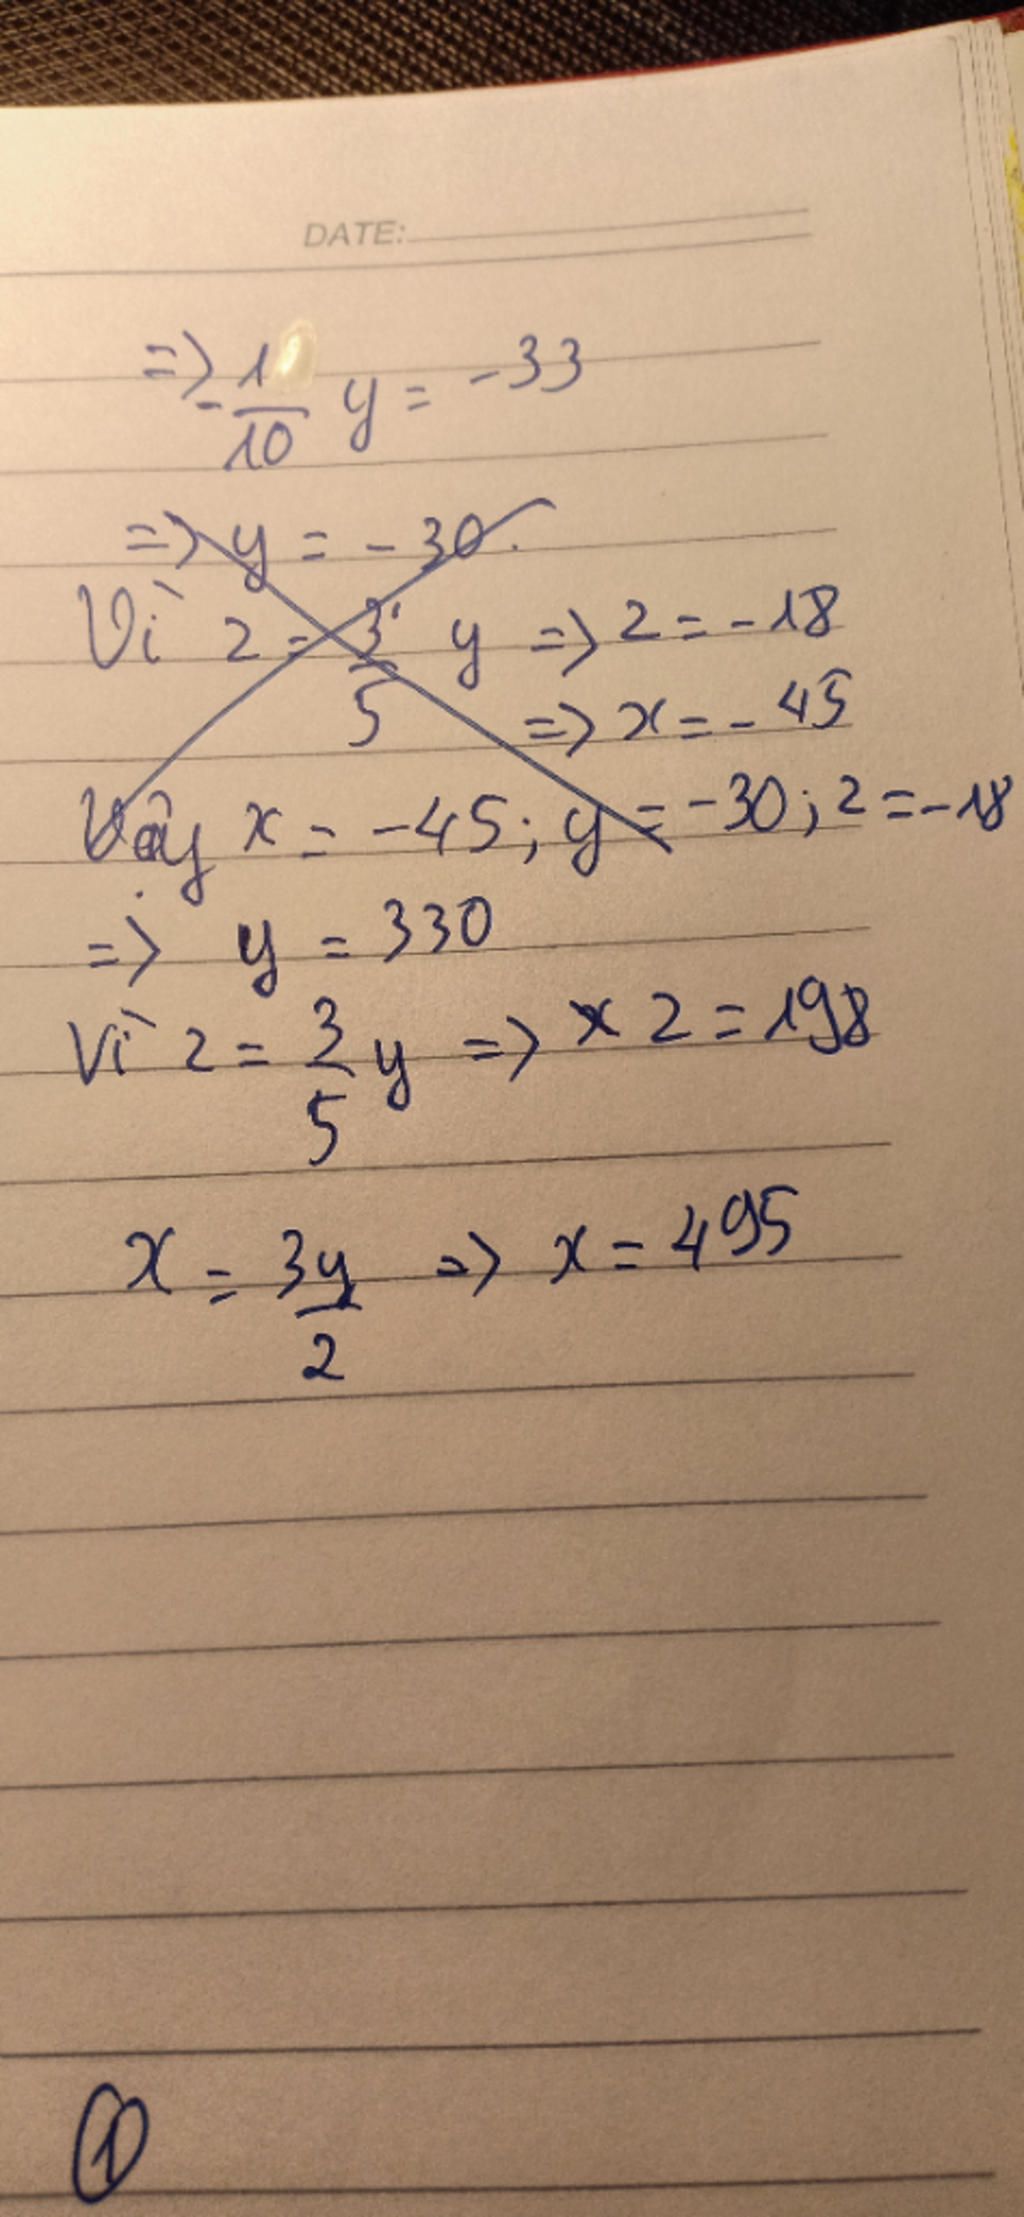 DATE:
=> -1/10 y = -33
=> y = -30.
Vì z = 3/5 y => z = -18
=> x = -45
Vậy x = -45; y = -30; z = -18
=> y = 330
Vì z = 3/5 y => x z = 198
x = 3y/2 => x = 495
①